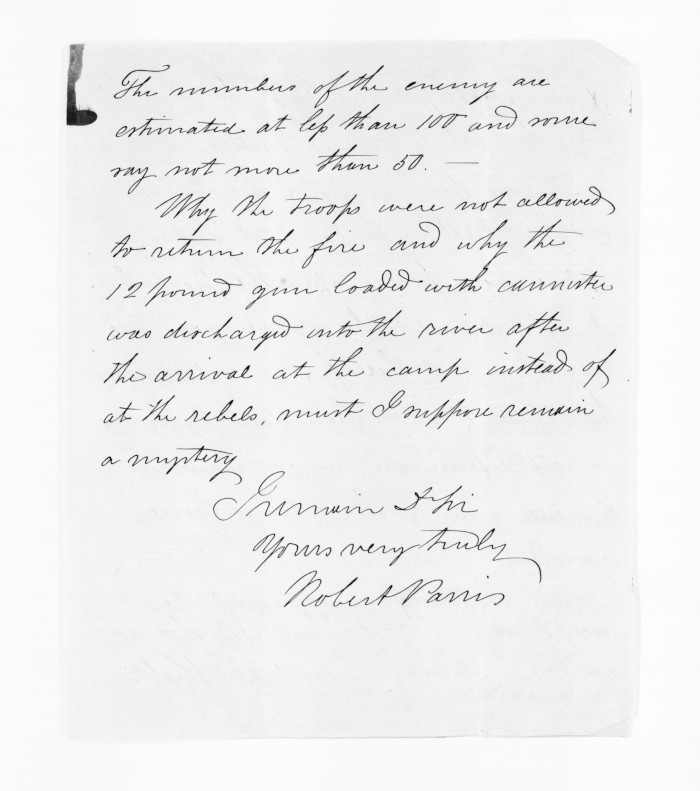 The numbers of the enemy are
estimated at less than 100 and some
say not more than 50. —
Why the troops were not allowed
to return the fire and why the
12 pound gun loaded with cannister
was discharged into the river after
the arrival at the camp instead of
at the rebels, must I suppose remain
a mystery
I remain D Sir
Yours very truly
Robert Parris